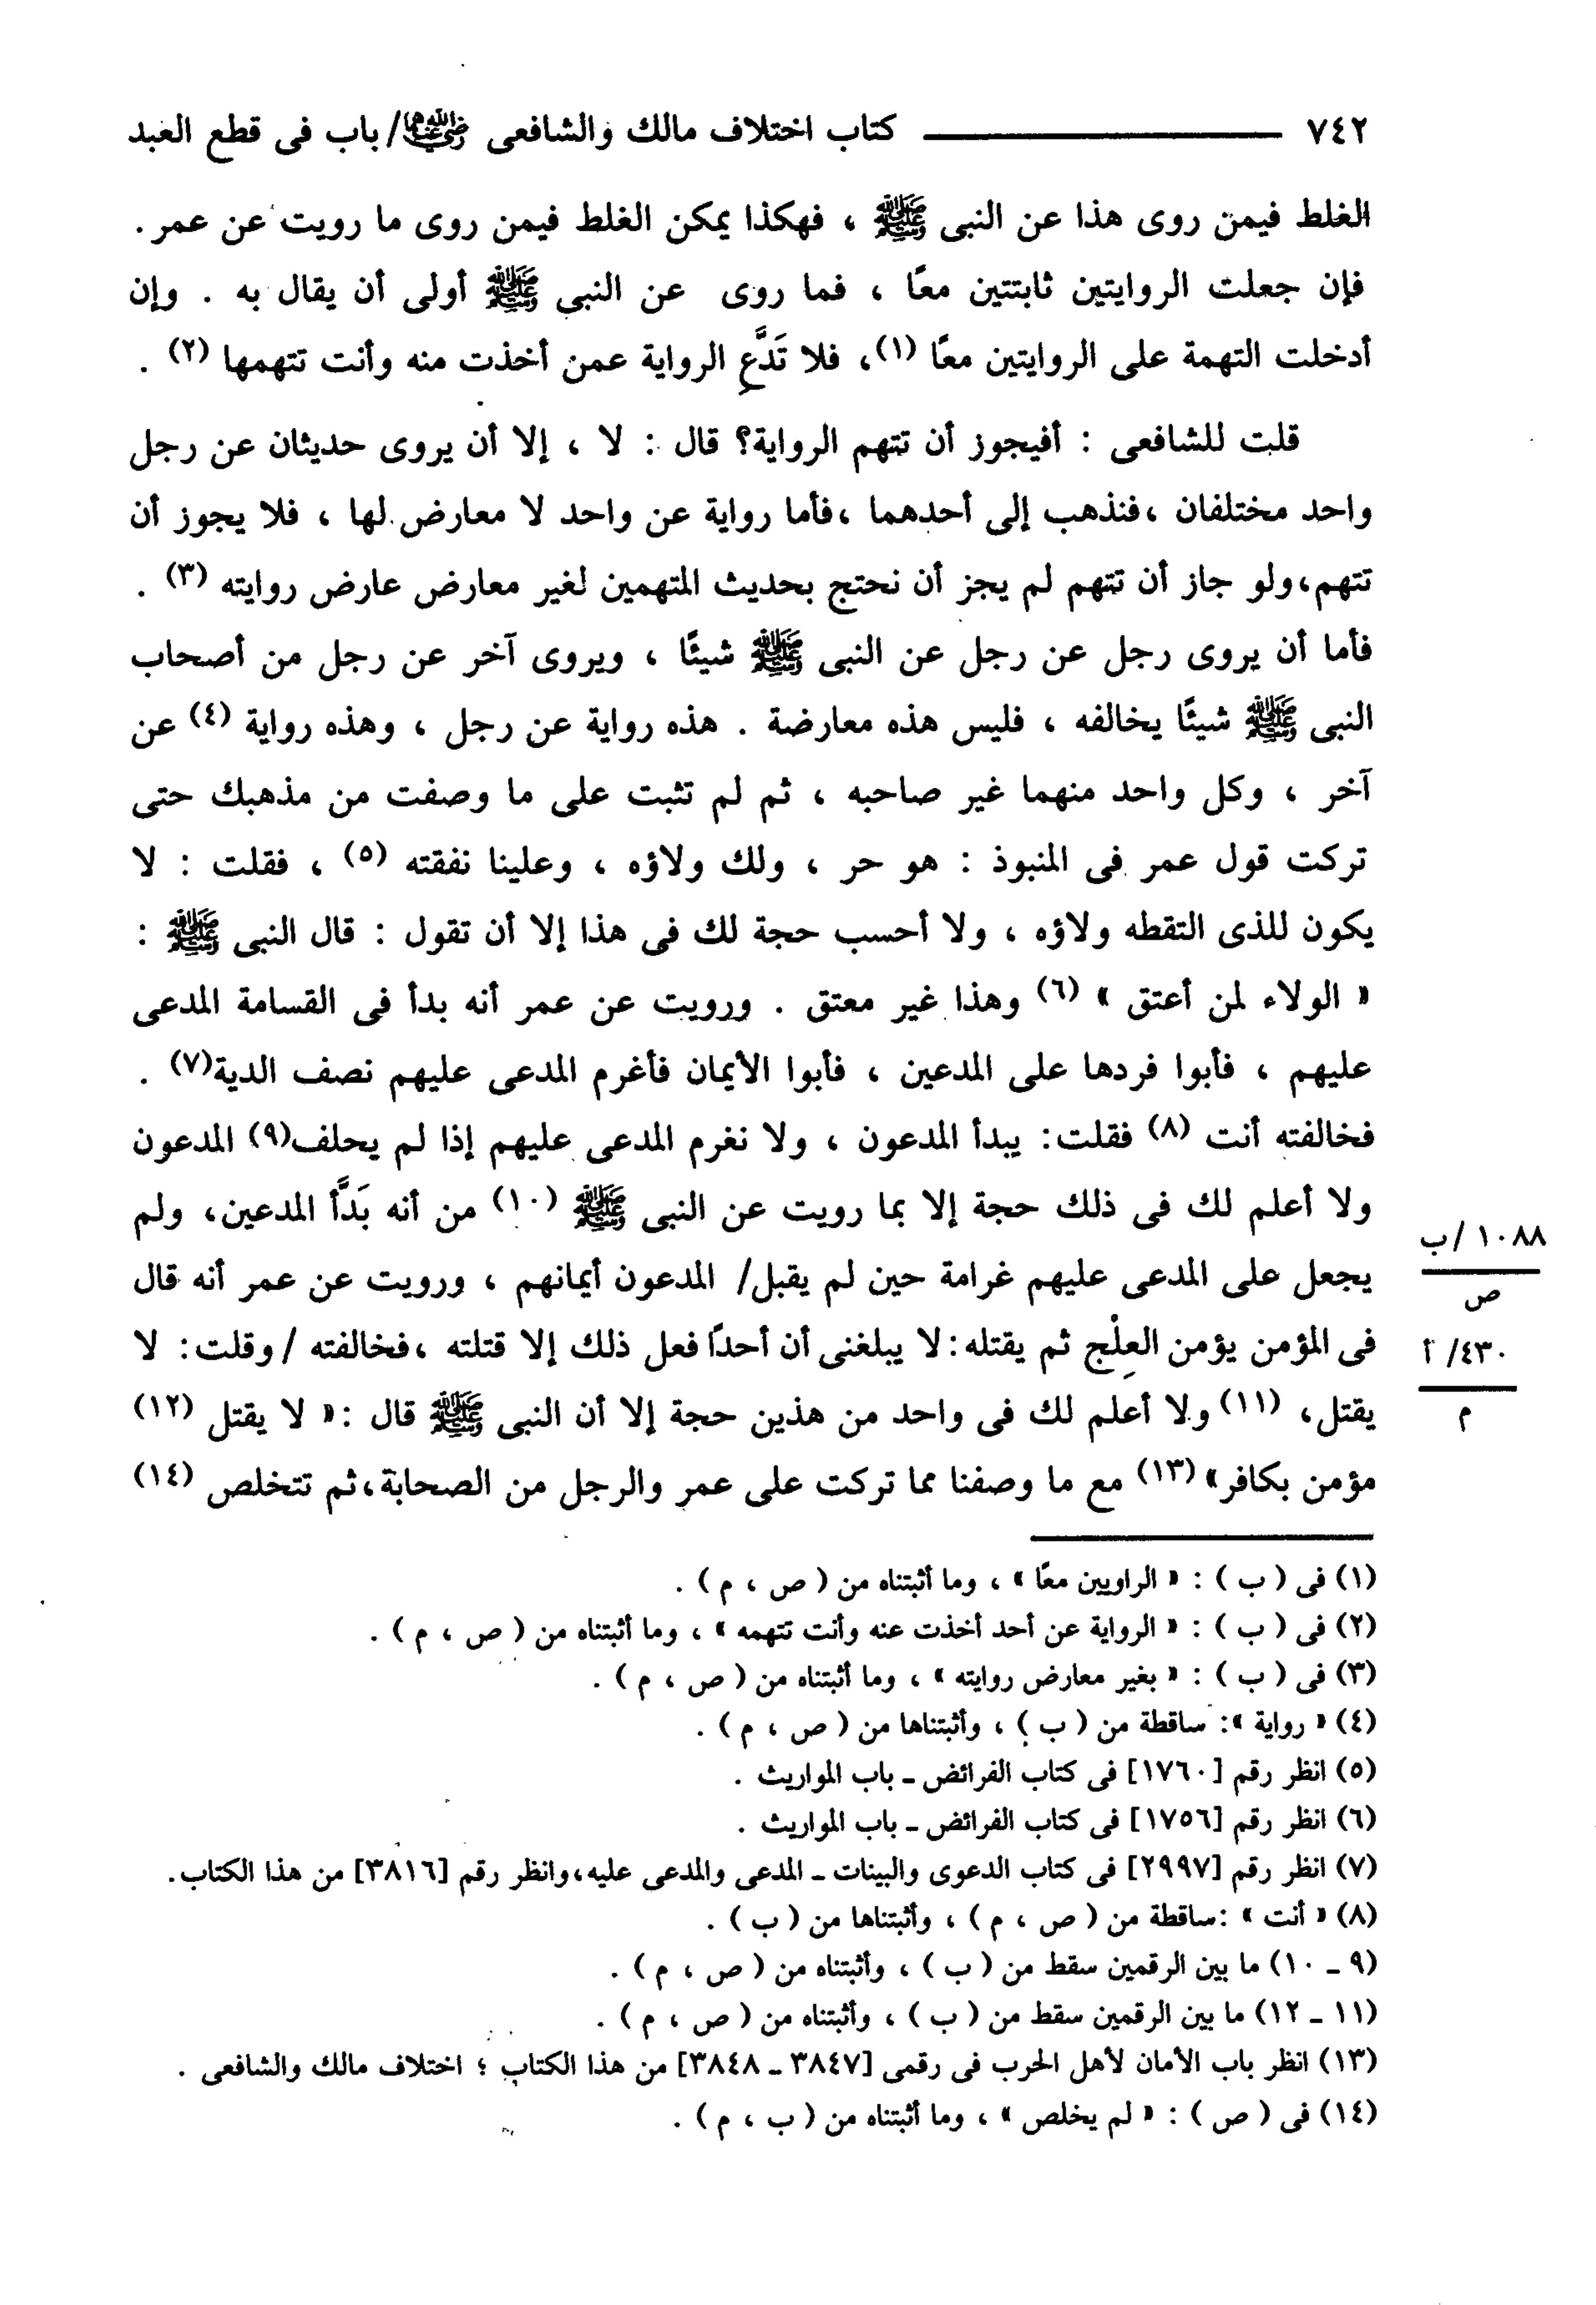 ٧٤٢ ــــــــ كتاب اختلاف مالك والشافعى رضي الله عنهما / باب فى قطع العبد
الغلط فيمن روى هذا عن النبى ﷺ ، فهكذا يمكن الغلط فيمن روى ما رويت عن عمر .
فإن جعلت الروايتين ثابتتين معًا ، فما روى عن النبى ﷺ أولى أن يقال به . وإن
أدخلت التهمة على الروايتين معًا (١)، فلا تَدَّعِ الرواية عمن أخذت منه وأنت تتهمها (٢) .
قلت للشافعى : أفيجوز أن تتهم الرواية؟ قال : لا ، إلا أن يروى حديثان عن رجل
واحد مختلفان ،فنذهب إلى أحدهما ،فأما رواية عن واحد لا معارض لها ، فلا يجوز أن
تتهم،ولو جاز أن تتهم لم يجز أن نحتج بحديث المتهمين لغير معارض عارض روايته (٣) .
فأما أن يروى رجل عن رجل عن النبى ﷺ شيئًا ، ويروى آخر عن رجل من أصحاب
النبى ﷺ شيئًا يخالفه ، فليس هذه معارضة . هذه رواية عن رجل ، وهذه رواية (٤) عن
آخر ، وكل واحد منهما غير صاحبه ، ثم لم تثبت على ما وصفت من مذهبك حتى
تركت قول عمر فى المنبوذ : هو حر ، ولك ولاؤه ، وعلينا نفقته (٥) ، فقلت : لا
يكون للذى التقطه ولاؤه ، ولا أحسب حجة لك فى هذا إلا أن تقول : قال النبى ﷺ :
« الولاء لمن أعتق » (٦) وهذا غير معتق . ورويت عن عمر أنه بدأ فى القسامة المدعى
عليهم ، فأبوا فردها على المدعين ، فأبوا الأيمان فأغرم المدعى عليهم نصف الدية(٧) .
فخالفته أنت (٨) فقلت: يبدأ المدعون ، ولا نغرم المدعى عليهم إذا لم يحلف(٩) المدعون
ولا أعلم لك فى ذلك حجة إلا بما رويت عن النبى ﷺ (١٠) من أنه بَدَّأ المدعين، ولم
١٠٨٨/ب
ص
يجعل على المدعى عليهم غرامة حين لم يقبل/ المدعون أيمانهم ، ورويت عن عمر أنه قال
فى المؤمن يؤمن العِلْج ثم يقتله:لا يبلغنى أن أحدًا فعل ذلك إلا قتلته ،فخالفته /وقلت: لا
٤٣٠/ أ
م
يقتل، (١١) ولا أعلم لك فى واحد من هذين حجة إلا أن النبى ﷺ قال :« لا يقتل (١٢)
مؤمن بكافر» (١٣) مع ما وصفنا مما تركت على عمر والرجل من الصحابة،ثم تتخلص (١٤)
(١) فى ( ب ) : « الراويين معًا » ، وما أثبتناه من ( ص ، م ) .
(٢) فى ( ب ) : « الرواية عن أحد أخذت عنه وأنت تتهمه » ، وما أثبتناه من ( ص ، م ) .
(٣) فى ( ب ) : « بغير معارض روايته » ، وما أثبتناه من ( ص ، م ) .
(٤) « رواية »: ساقطة من ( ب ) ، وأثبتناها من ( ص ، م ) .
(٥) انظر رقم [١٧٦٠] فى كتاب الفرائض ـ باب المواريث .
(٦) انظر رقم [١٧٥٦] فى كتاب الفرائض ـ باب المواريث .
(٧) انظر رقم [٢٩٩٧] فى كتاب الدعوى والبينات ـ المدعى والمدعى عليه،وانظر رقم [٣٨١٦] من هذا الكتاب.
(٨) « أنت » :ساقطة من ( ص ، م ) ، وأثبتناها من ( ب ) .
(٩ ـ ١٠) ما بين الرقمين سقط من ( ب ) ، وأثبتناه من ( ص ، م ) .
(١١ ـ ١٢) ما بين الرقمين سقط من ( ب ) ، وأثبتناه من ( ص ، م ) .
(١٣) انظر باب الأمان لأهل الحرب فى رقمى [٣٨٤٧ ـ ٣٨٤٨] من هذا الكتاب ؛ اختلاف مالك والشافعى .
(١٤) فى ( ص ) : « لم يخلص » ، وما أثبتناه من ( ب ، م ) .